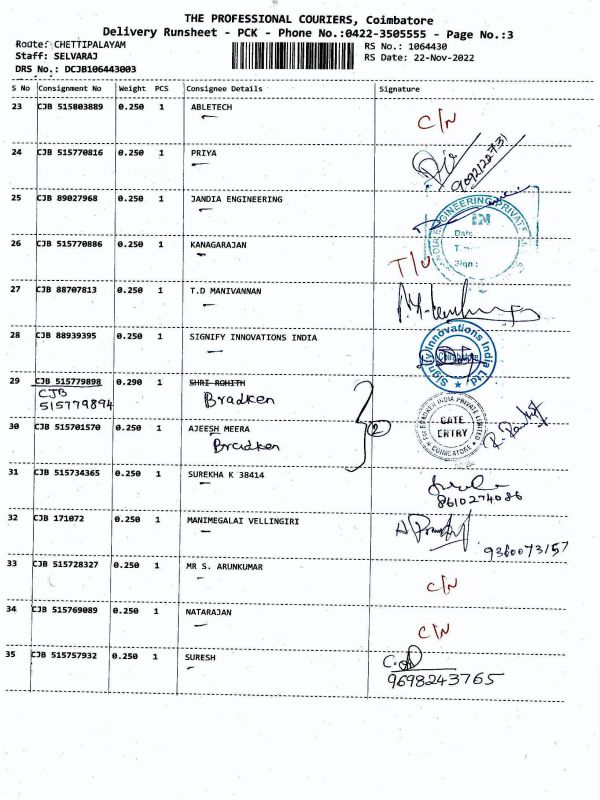 THE PROFESSIONAL COURIERS, Coimbatore
Delivery Runsheet - PCK - Phone No.:0422-3505555 - Page No.:3
Route: CHETTIPALAYAM
RS No.: 1064430
Staff: SELVARAJ
RS Date: 22-Nov-2022
DRS No.: DCJB106443003
S No Consignment No Weight PCS Consignee Details Signature
23 CJB 515803889 0.250 1 ABLETECH C/N
24 CJB 515770816 0.250 1 PRIYA 9092122731
25 CJB 89027968 0.250 1 JANDIA ENGINEERING
ENGINEERING PRIVATE
IN
Date
Sign:
26 CJB 515770886 0.250 1 KANAGARAJAN T/U
27 CJB 88707813 0.250 1 T.D MANIVANNAN
28 CJB 88939395 0.250 1 SIGNIFY INNOVATIONS INDIA
Signify Innovations India Ltd
29 CJB 515779898 0.290 1 SHRI ROHITH
CJB
515779894
Bradken
2
GATE
ENTRY
COIMBATORE
30 CJB 515701570 0.250 1 AJEESH MEERA
Bradken
31 CJB 515734365 0.250 1 SUREKHA K 38414
8610274086
32 CJB 171072 0.250 1 MANIMEGALAI VELLINGIRI
9360073157
33 CJB 515728327 0.250 1 MR S. ARUNKUMAR C/N
34 CJB 515769089 0.250 1 NATARAJAN C/N
35 CJB 515757932 0.250 1 SURESH
9698243765